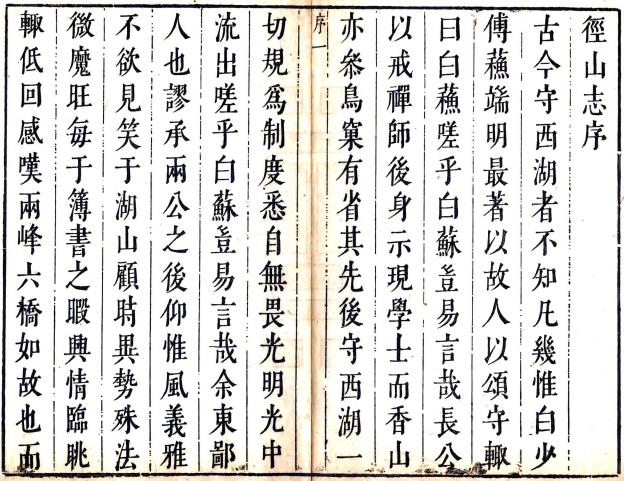 徑山志序
古今守西湖者不知凡幾惟白少
傅蘓端明最著以故人以頌守輙
曰白蘓嗟乎白蘇豈易言哉長公
以戒禪師後身示現學士而香山
亦叅鳥窠有省其先後守西湖一
序一
切規爲制度悉自無畏光明光中
流出嗟乎白蘇豈易言哉余東鄙
人也謬承兩公之後仰惟風義雅
不欲見笑于湖山顧時異勢殊法
微魔旺每于簿書之暇興情臨眺
輙低回感嘆兩峰六橋如故也而